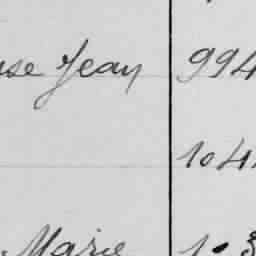 use Jean 994
104
Marie 10